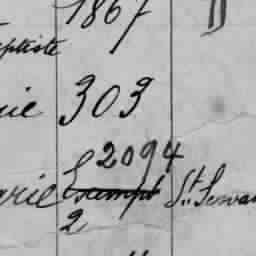 1867
aptiste
rie 303
2094
arie Exempt St Servan
2